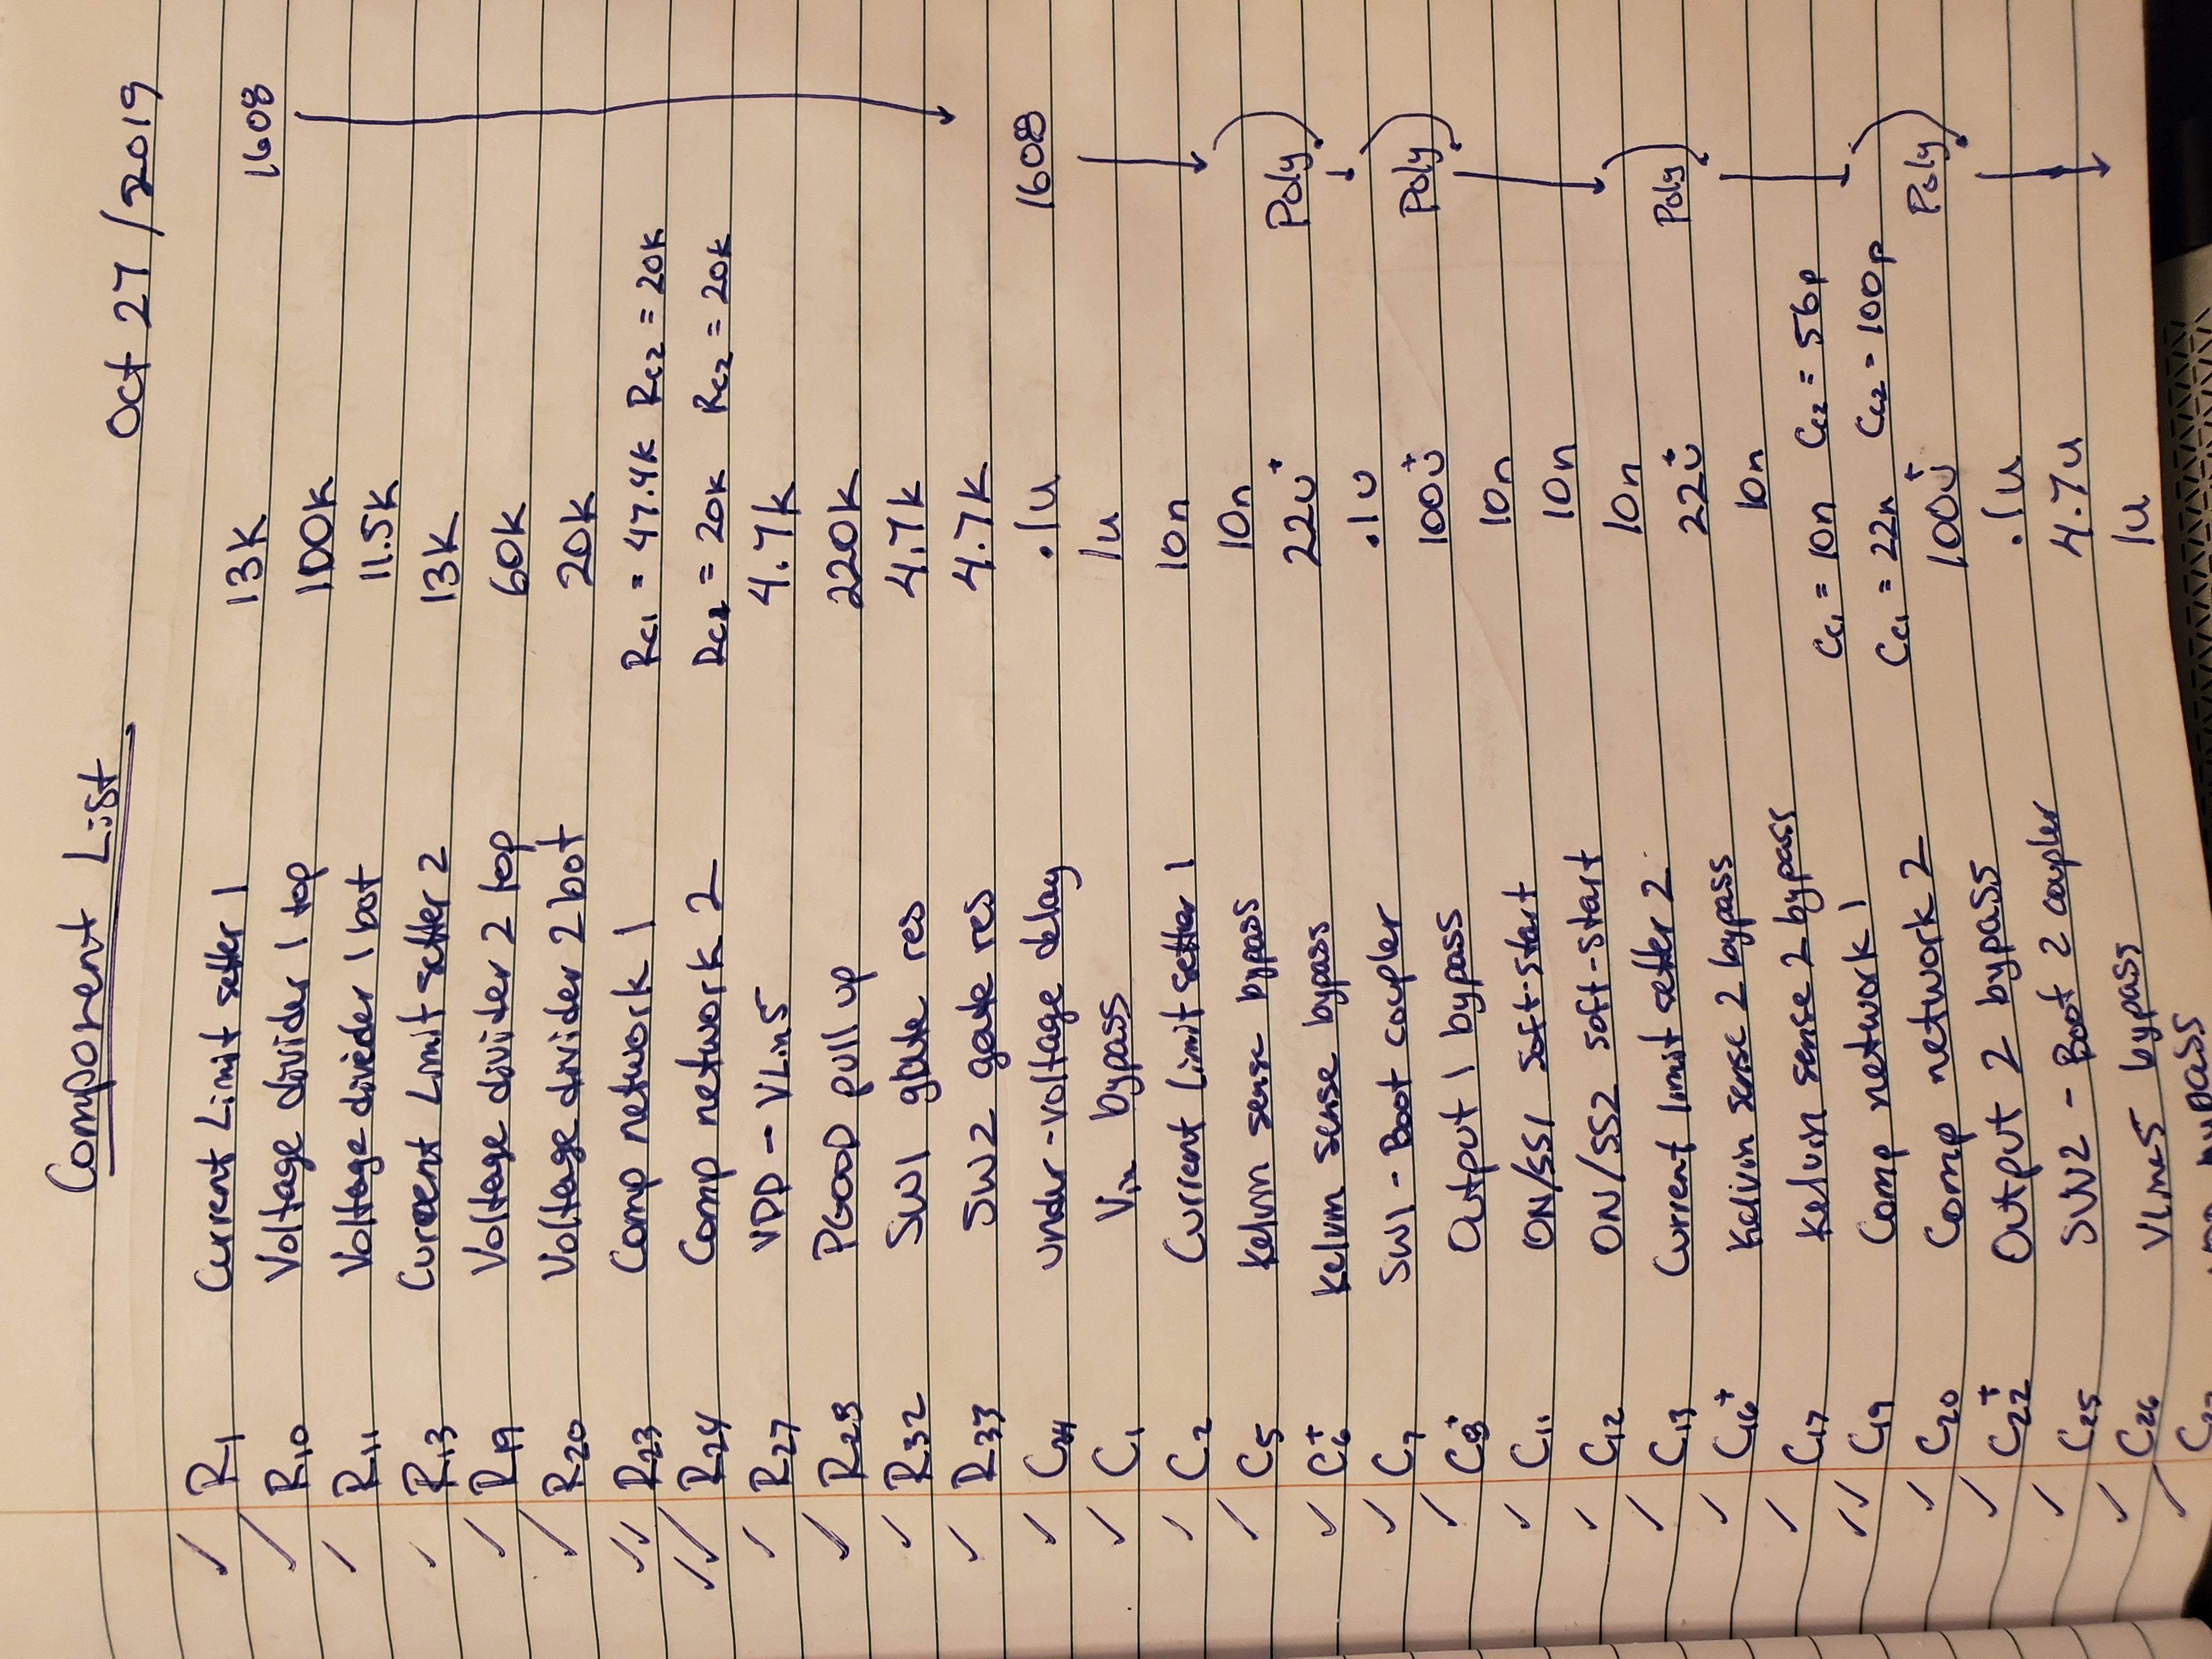 Component List
Oct 27 / 2019
✓ R1 Current Limit setter 1 13K 1608
✓ R10 Voltage divider 1 top 100K
✓ R11 Voltage divider 1 bot 11.5K
✓ R13 Current Limit setter 2 13K
✓ R19 Voltage divider 2 top 60K
✓ R20 Voltage divider 2 bot 20K
✓✓ R23 Comp network 1 Rc1 = 47.4K Rc2 = 20K
✓✓ R24 Comp network 2 Rc1 = 20K Rc2 = 20K
✓ R27 VDD - VLin5 4.7K
✓ R28 PGOOD pull up 220K
✓ R32 SW1 gate res 4.7K
✓ R33 SW2 gate res 4.7K
✓ C34 under-voltage delay .1u 1608
✓ C1 Vin bypass 1u
✓ C2 Current limit setter 1 10n
✓ C5 Kelvin sense bypass 10n
✓ C6+ Kelvin sense bypass 22u+ Poly
✓ C7 SW1 - Boot coupler .1u
✓ C8+ Output 1 bypass 100u+ Poly
✓ C11 ON/SS1 soft-start 10n
✓ C12 ON/SS2 soft-start 10n
✓ C13 Current limit setter 2 10n
✓ C16+ Kelvin sense 2 bypass 22u+ Poly
✓ C17 Kelvin sense 2 bypass 10n
✓✓ C19 Comp network 1 Cc1 = 10n Cc2 = 56p
✓ C20 Comp network 2 Cc1 = 22n Cc2 = 100p
✓ C22+ Output 2 bypass 100u+ Poly
✓ C25 SW2 - Boot 2 coupler .1u
✓ C26 VLine5 bypass 4.7u
✓ bypass 1u